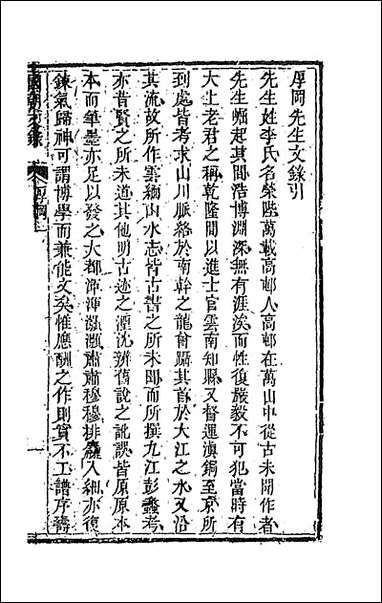 厚岡先生文錄引
先生姓李氏名榮陛萬載高邨人高邨在萬山中從古未聞作者
先生崛起其間浩博淵深無有涯涘而性復嚴毅不可犯當時有
大上老君之稱乾隆間以進士官雲南知縣又督運滇銅至京所
到處皆考求山川脈絡於南幹之龍嘗躡其首於大江之水又沿
其流故所作雲緬山水志皆古書之所未聞而所撰九江彭蠡考
亦昔賢之所未道其他明古迹之湮沈辨舊說之訛謬皆原原本
本而筆墨亦足以發之大都渾渾灝灝肅肅穆穆排奡入細亦復
鍊氣歸神可謂博學而兼能文矣惟應酬之作則實不工譜序壽
國朝文錄
厚岡
一